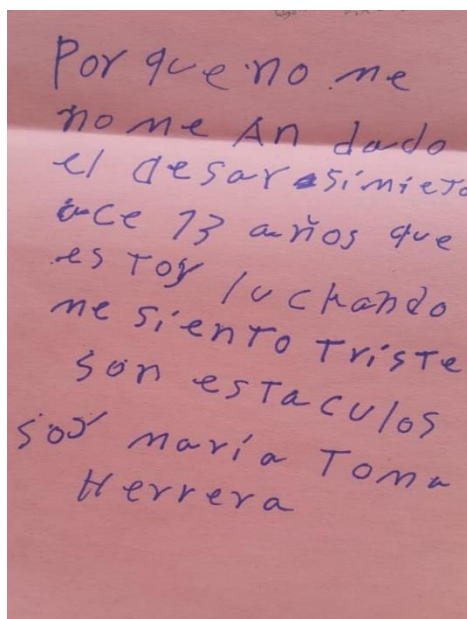 Por que no me
no me An dado
el desarasimieto
ace 13 años que
estoy luchando
me siento triste
son estaculos
soy maría Toma
Herrera